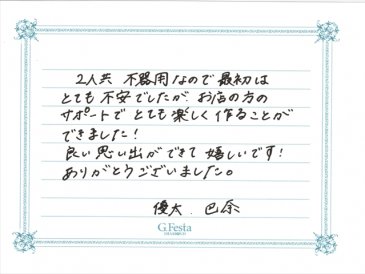 2人共 不器用なので最初は
とても 不安でしたが、お店の方の
サポートで とても楽しく 作ることが
できました!
良い思い出ができて 嬉しいです!
ありがとうございました。
優太 巴奈
G.Festa